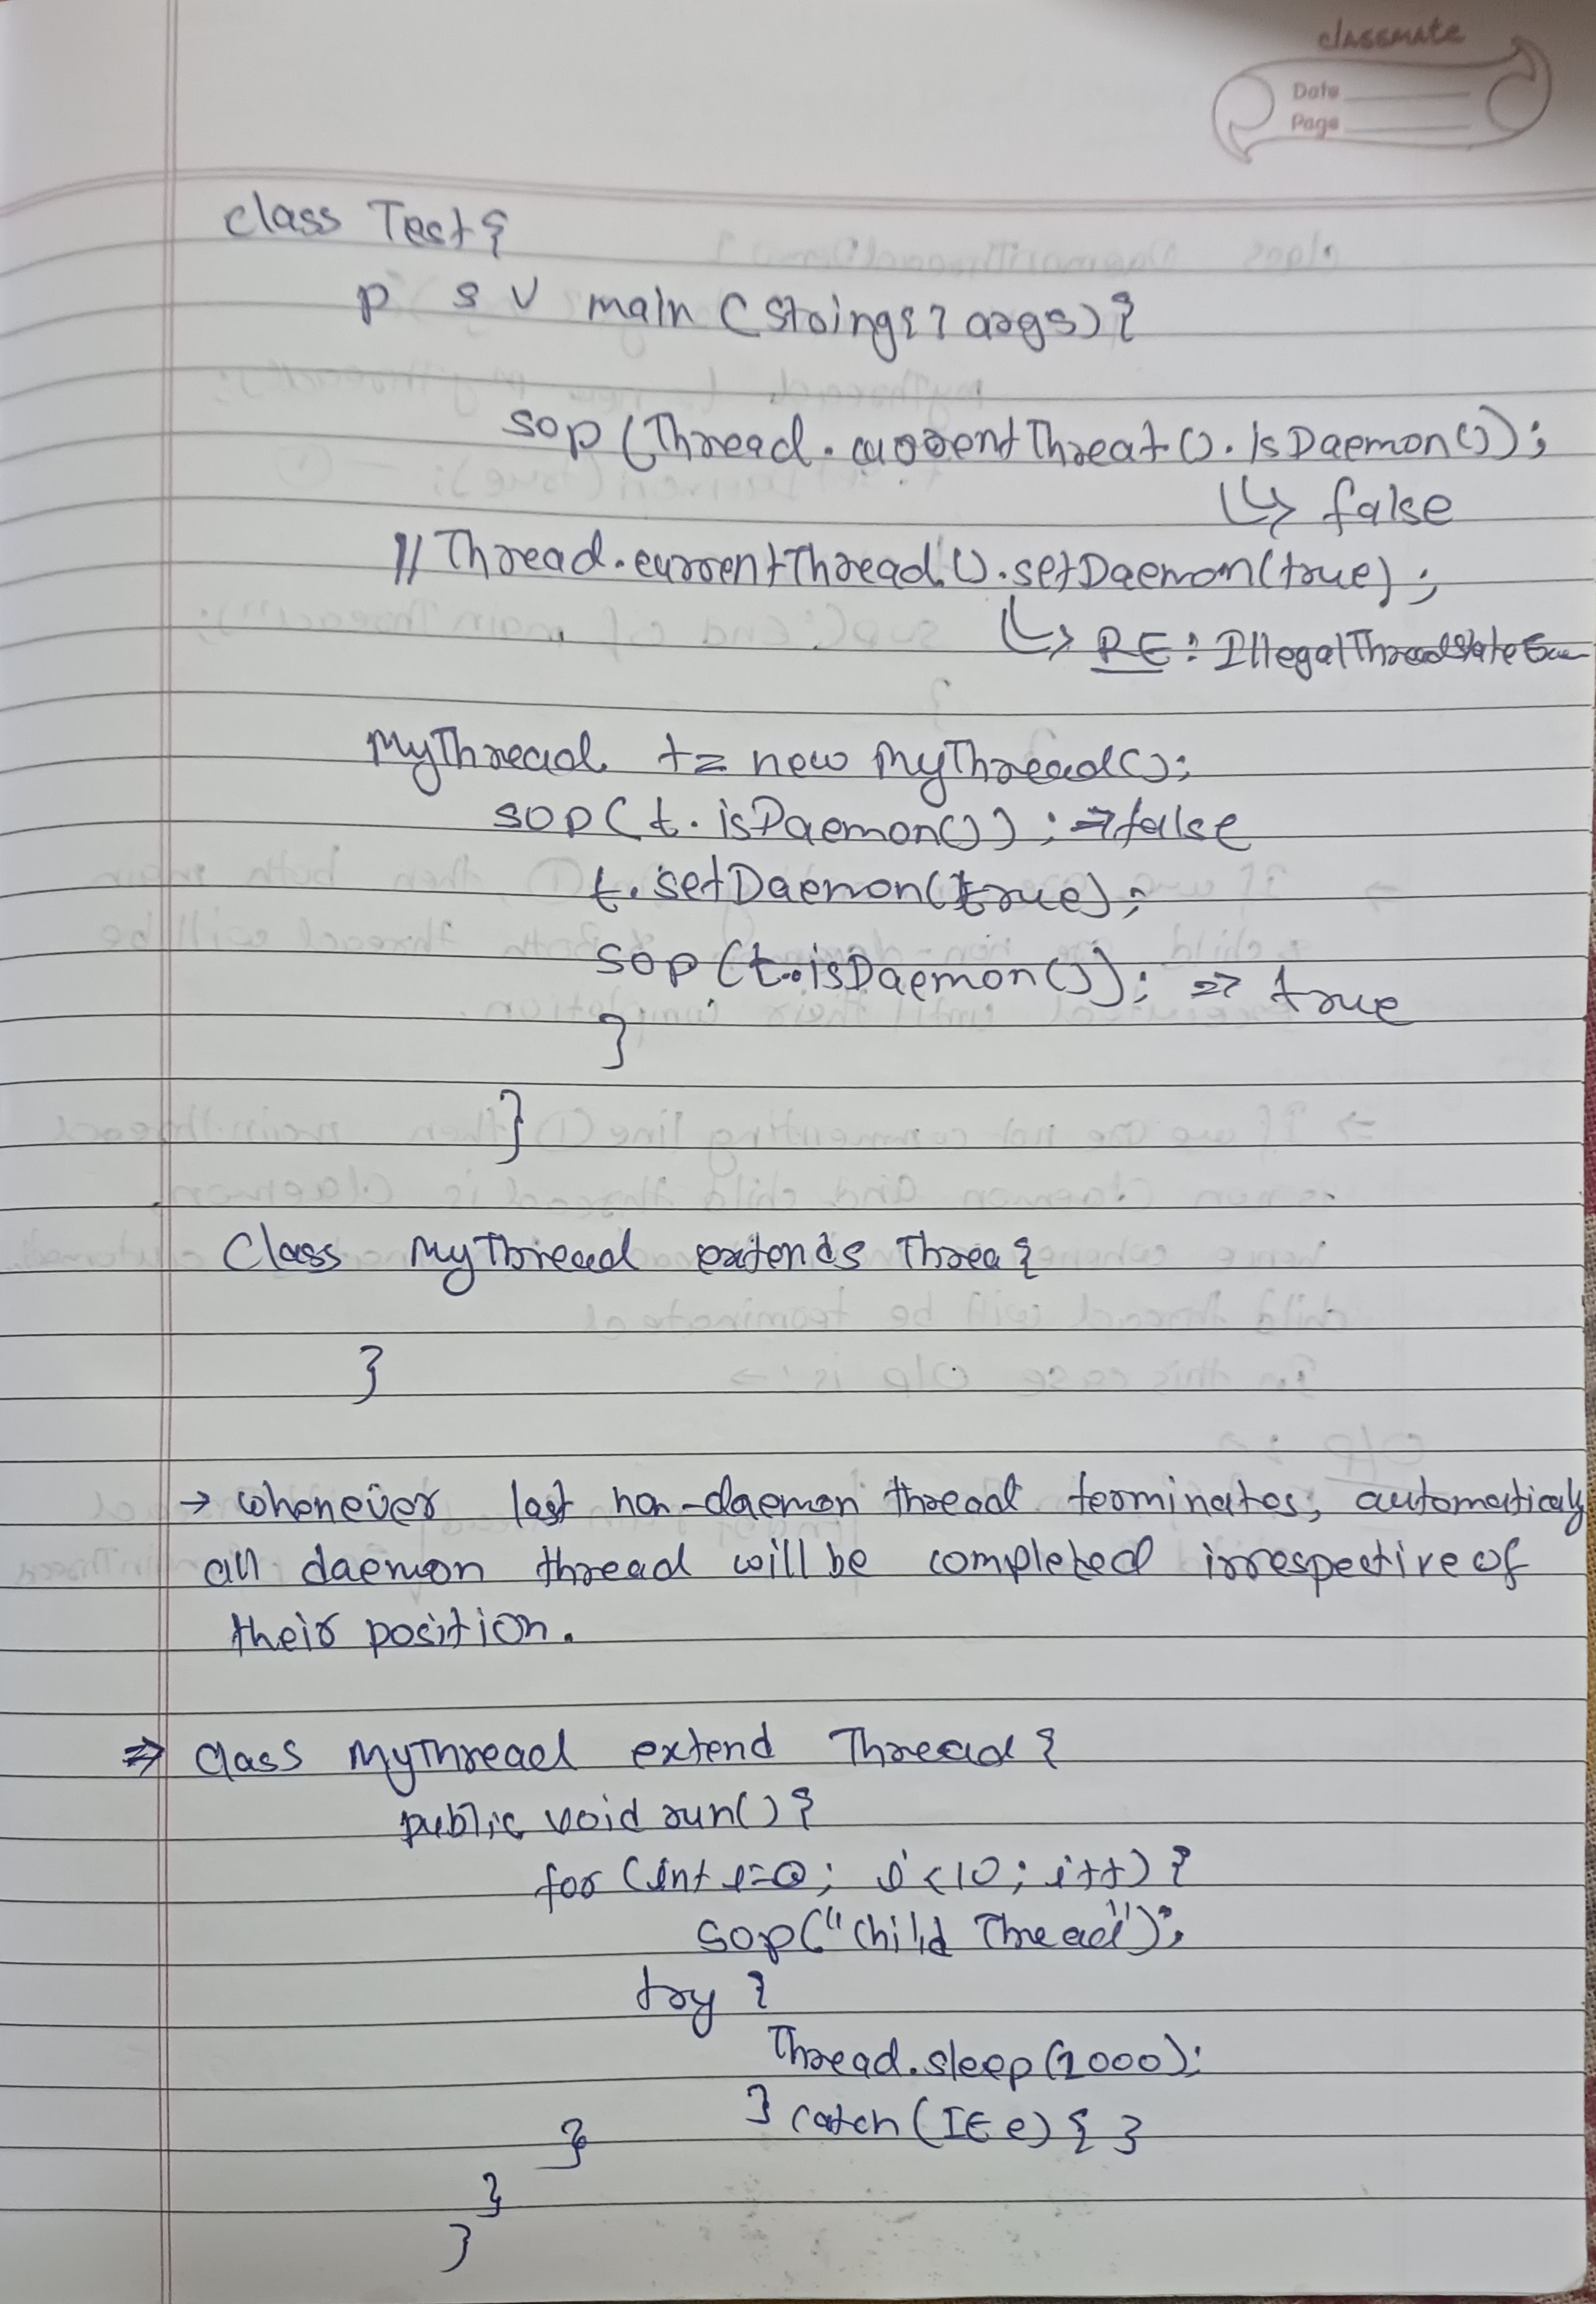 classmate
Date
Page
class Test{
p s v main (String[] args){
sop (Thread.currentThreat().isDaemon());
↳ false
// Thread.currentThread().setDaemon(true);
↳ RE: IllegalThreadState
MyThread t= new MyThread();
sop(t.isDaemon()); ⇒ false
t.setDaemon(true);
sop(t.isDaemon()); ⇒ true
}
}
Class MyThread extends Threa{
}
→ whenever last non-daemon thread terminates, automatically
all daemon thread will be completed irrespective of
their position.
⇒ class MyThread extend Thread{
public void run(){
for (int i=0; i<10; i++){
sop("Child Thread");
try {
Thread.sleep(2000);
} catch(IE e) { }
}
}
}